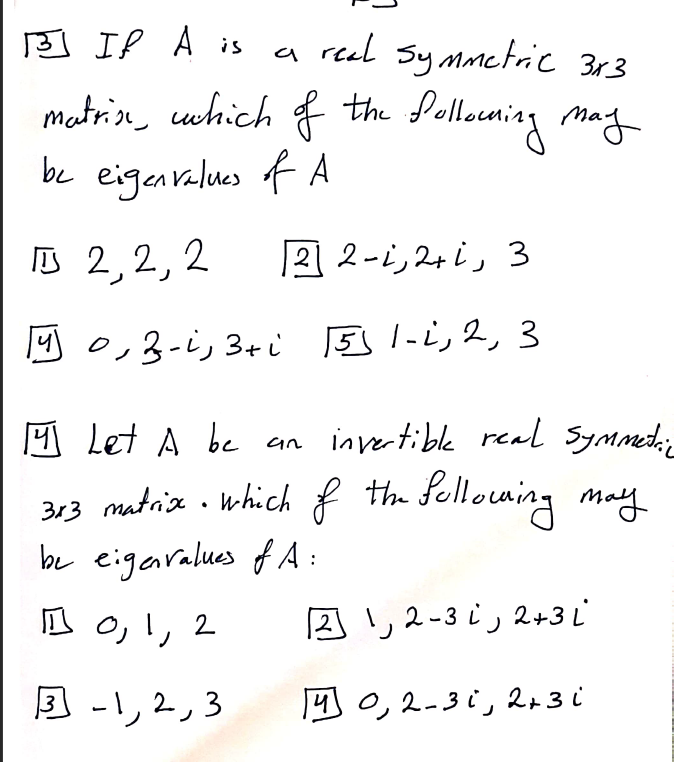 [3] If A is a real symmetric 3x3
matrix, which of the following may
be eigenvalues of A
[1] 2, 2, 2 [2] 2-i, 2+i, 3
[4] 0, 3-i, 3+i [5] 1-i, 2, 3
[4] Let A be an invertible real symmetric
3x3 matrix. which of the following may
be eigenvalues of A:
[1] 0, 1, 2 [2] 1, 2-3i, 2+3i
[3] -1, 2, 3 [4] 0, 2-3i, 2+3i